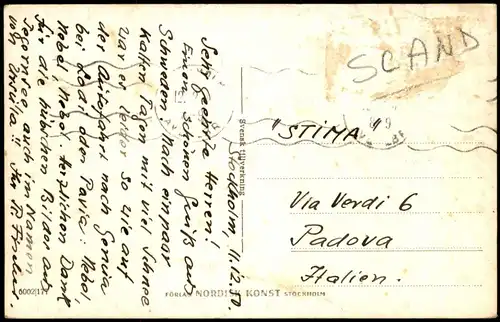 Stockholm, 11.12.
Sehr geehrte Herren!
Einen schönen Gruß aus
Schweden. Nach ein paar
kalten Tagen mit viel Schnee
war es leider so wie auf
der Autofahrt nach Genua
bei Lodi oder Pavia: Nebel,
Nebel, Nebel. Herzlichen Dank
für die hübschen Bilder aus
auch im Namen
von Ursula!! Ihr
SCAND
"STIMA"
Via Verdi 6
Padova
Italien.
Svensk tillverkning
6002/177
FÖRLAG NORDISK KONST STOCKHOLM